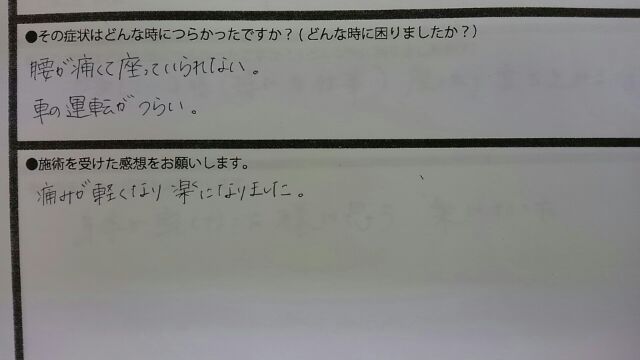 ●その症状はどんな時につらかったですか?(どんな時に困りましたか?)
腰が痛くて座っていられない。
車の運転がつらい。
●施術を受けた感想をお願いします。
痛みが軽くなり楽になりました。